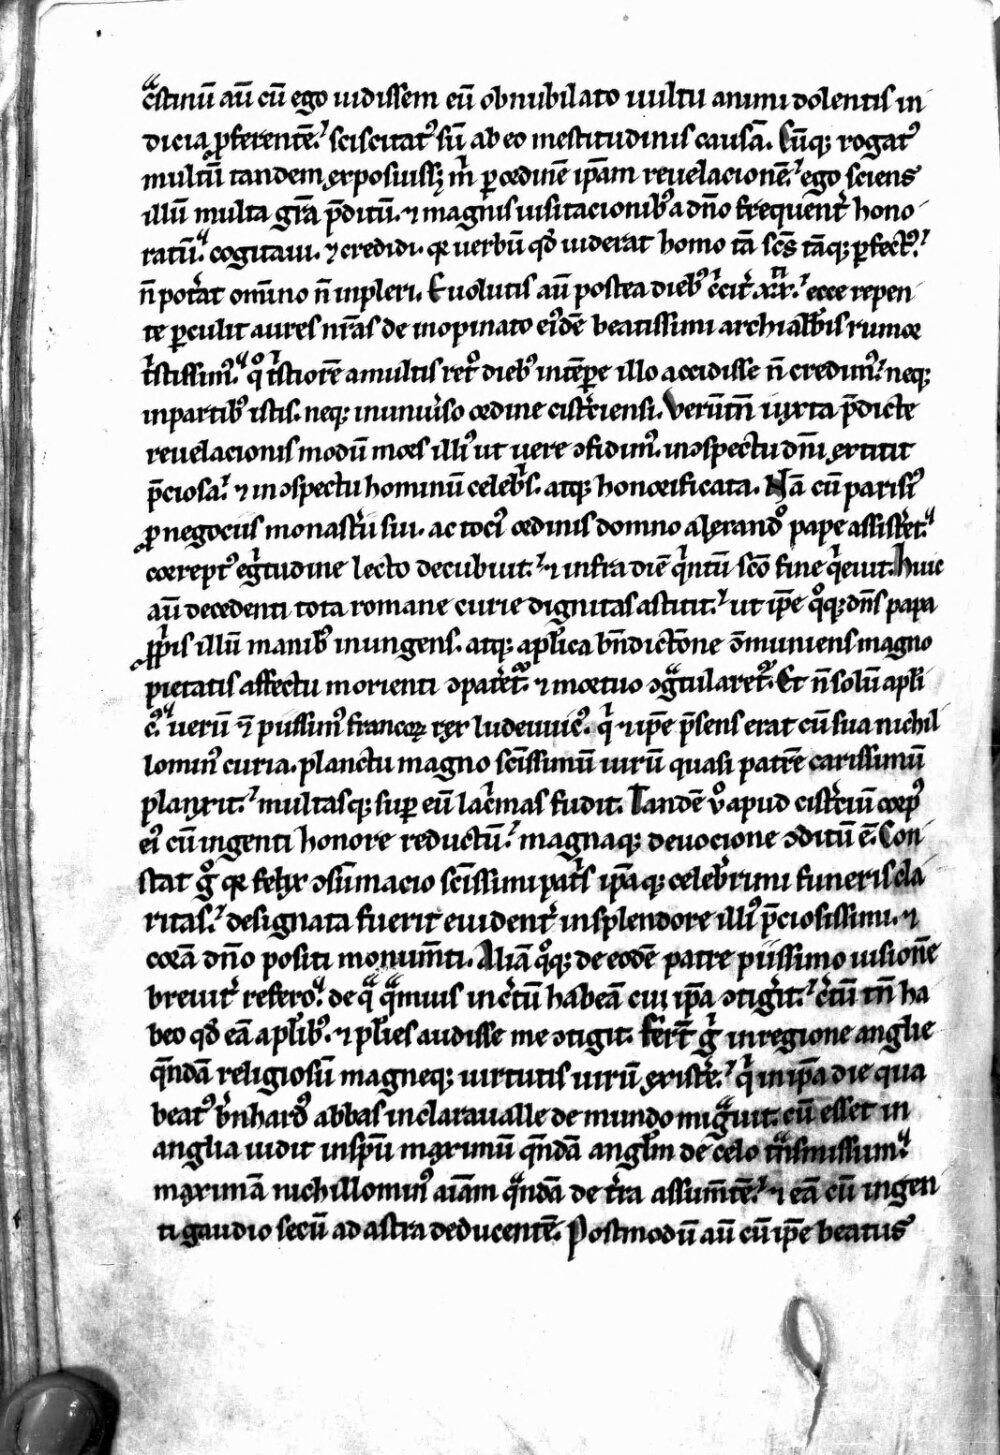 c̾stinū aū cū ego uidissem eū obnubilato uultu animi dolentis in
dicia ꝓferentē. sciscitat᷒ sū ab eo mestitudinis causā. Cūq; rogat᷒
multū tandem exposuiss; m̄ ꝑ ordinē ip̄am reuelacionē. ego sciens
illū multa gr̄a p̄ditū. ⁊ magnis uisitacionib᷒ a dn̄o frequent̾ hono
ratū. cogitaui. ⁊ credidi. qr uerbū qd̄ uiderat homo tā sc̄s tāq; ꝑfect᷒.
n̄ pot̾at omnino n̄ inpleri. Euolutis aū postea dieb᷒ c̾cit̾ xx. ecce repen
te ꝑculit aures nr̄as de inopinato ei᷒dē beatissimi archiabb̄is rumor
t̾stissim᷒. q̊ t̾stiorē a multis ret̊ dieb᷒ intēꝑe illo accidisse n̄ credim᷒. neq;
in partib᷒ istis. neq; in uniu̾so ordine cist̾ciensi. Verūtn̄ iuxta p̄dicte
reuelacionis modū mors illi᷒ ut uere ꝯfidim᷒. in ꝯspectu dn̄i extitit
p̄ciosa. ⁊ in ꝯspectu hominū celeb̾s. atq; honorificata. Nā cū parisi᷒
ꝓ negociis monast̾ii sui. ac toci᷒ ordinis domno alexandro pape assist̾et.
corrept᷒ eg̾tudine lecto decubuit. ⁊ infra diē q̾ntū sc̄o fine q̾euit. Huic
aū decedenti tota romane curie dignitas astitit. ut ip̄e q̊q; dn̄s papa
ꝓp̾is illū manib᷒ inungens. atq; apl̄ica bn̄dictōne ꝯmuniens magno
pietatis affectu morienti ꝯpateret᷑. ⁊ mortuo ꝯgᷓtularet᷑. Et n̄ solū apl̄i
c᷒. uerū ⁊ piissim᷒ francoꝝ rex ludewic᷒. q̾ ⁊ ip̄e p̄sens erat cū sua nichil
lomin᷒ curia. planctu magno sc̄issimū uirū quasi patrē carissimū
planxit. multasq; suꝑ eū lac̾mas fudit. Tandē ů apud cist̾ciū corp᷒
ei᷒ cū ingenti honore reductū. magnaq; deuocione ꝯditū ē. Con
stat g̊ qr felix ꝯsūmacio sc̄issimi pat̾s ip̄aq; celeb̾rimi funeris cla
ritas. designata fuerit euident̾ in splendore illi᷒ p̄ciosissimi. ⁊
corā dn̄o positi monum̄ti. Aliā q̊q; de eodē patre piissimo uisionē
breuit̾ refero. de qᷓ qᷓmuis inc̾tū habeā cui ip̄a ꝯtig̾it. c̾tū tn̄ ha
beo qd̄ eā a pl̄ib᷒. ⁊ pl̄ies audisse me ꝯtigit. Fert᷑ g̾ in regione anglie
qᷓndā religiosū magneq; uirtutis uirū exist̾e. q̾ in ip̄a die qua
beat᷒ b̾nhard᷒ abbas in claraualle de mundo migᷓuit. cū esset in
anglia uidit in sp̄u maximū qᷓndā angl̄m de celo tᷓnsmissum.
maximā nichillomin᷒ aīam qᷓndā de t̾ra assum̄tē. ⁊ eā cū ingen
ti gaudio secū ad astra deducentē. Postmodū aū cū ip̄e beatus